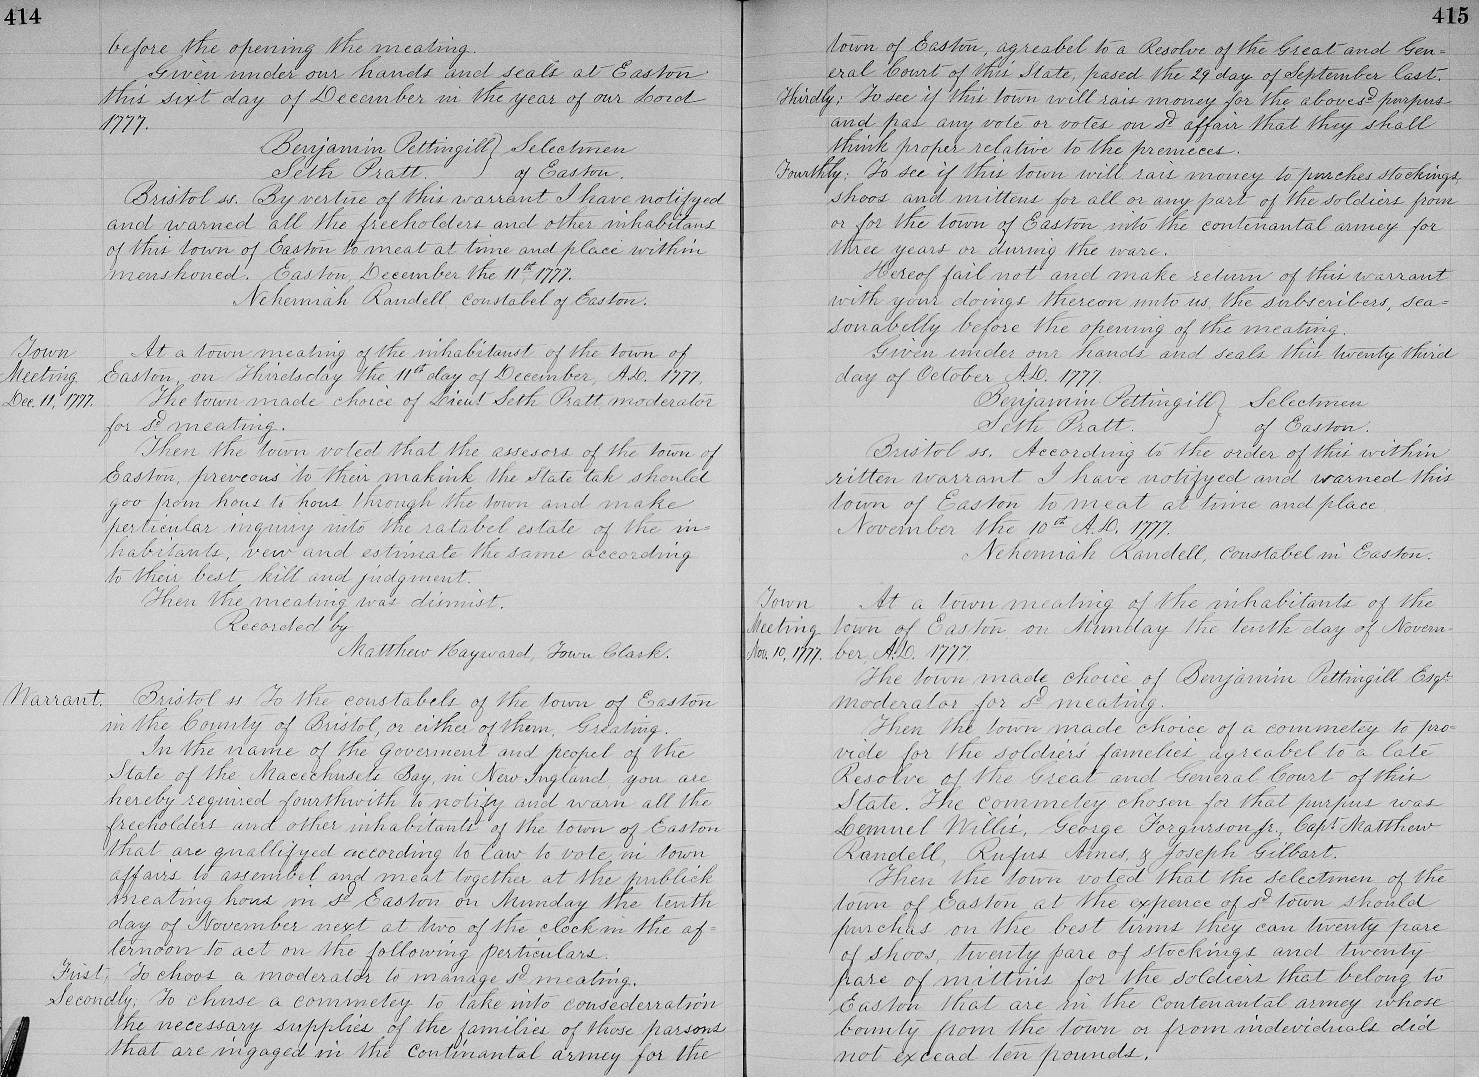 414
before the opening the meating.
Given under our hands and seals at Easton
this sixt day of December in the year of our Lord
1777.
Benjamin Pettingill } Selectmen
Seth Pratt. } of Easton.
Bristol ss. By vertue of this warrant I have notifyed
and warned all the freeholders and other inhabitans
of this town of Easton to meat at time and place within
menshoned. Easton, December the 11th 1777.
Nehemiah Randell constabel of Easton.
Town
Meeting
Dec. 11, 1777.
At a town meating of the inhabitanst of the town of
Easton, on Thirdsday the 11th day of December, A.D. 1777,
The town made choice of Lieut Seth Pratt moderator
for sd meating.
Then the town voted that the assesors of the town of
Easton, preveous to their makink the State tak should
goo from hous to hous through the town and make
perticular inquiry into the ratabel estate of the in=
habitants, vew and estimate the same according
to their best kill and judgment.
Then the meating was dismist.
Recorded by
Matthew Hayward, Town Clark.
Warrant.
Bristol ss To the constabels of the town of Easton
in the County of Bristol, or either of them, Greating.
In the name of the Goverment and peopel of the
State of the Macechusets Bay, in New Ingland you are
hereby required fourthwith to notify and warn all the
freeholders and other inhabitants of the town of Easton
that are quallifyed according to law to vote in town
affairs to assembel and meat together at the publick
meating hous in sd Easton on Munday the tenth
day of November next at two of the clock in the af=
ternoon to act on the following perticulars.
First, To choos a moderator to manage sd meating.
Secondly; To chuse a commetey to take into consederration
the necessary supplies of the families of those parsons
that are ingaged in the continantal armey for the
415
town of Easton, agreabel to a Resolve of the Great and Gen=
eral Court of this State, pased the 29 day of September last.
Thirdly; To see if this town will rais money for the abovesd purpus
and pas any vote or votes on sd affair that they shall
think proper relative to the premeces.
Fourthly; To see if this town will rais money to purches stockings,
shoos and mittens for all or any part of the soldiers from
or for the town of Easton into the contenantal armey for
three years or during the ware.
Hereof fail not and make return of this warrant
with your doings thereon unto us, the subscribers, sea=
sonabelly before the opening of the meating.
Given under our hands and seals this twenty third
day of October A.D. 1777.
Benjamin Pettingill } Selectmen
Seth Pratt. } of Easton.
Bristol ss. According to the order of this within
ritten warrant I have notifyed and warned this
town of Easton to meat at time and place
November the 10th A.D. 1777.
Nehemiah Randell, constabel in Easton.
Town
Meeting
Nov. 10, 1777.
At a town meating of the inhabitants of the
town of Easton on Munday the tenth day of Novem=
ber, A.D. 1777.
The town made choice of Benjamin Pettingill Esqr
moderator for sd meating.
Then the town made choice of a commetey to pro=
vide for the soldiers' famelies, agreabel to a late
Resolve of the Great and General Court of this
State. The commetey chosen for that purpus was
Lemuel Willis, George Forgurson jr., Capt. Matthew
Randell, Rufus Ames, & Joseph Gilbart.
Then the town voted that the selectmen of the
town of Easton at the expence of sd town should
purchas on the best tirms they can twenty pare
of shoos, twenty pare of stockings and twenty
pare of mittins for the soldiers that belong to
Easton that are in the contenantal armey whose
bounty from the town or from individuals did
not excead ten pounds.